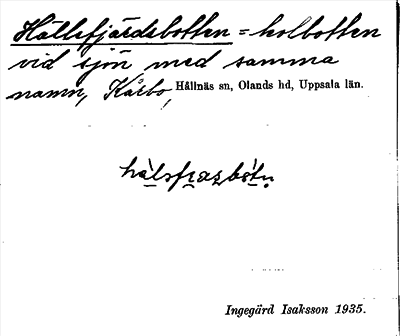 Hållsfjärdsbotten = holbotten
vid sjön med samma
namn, Kärbo, Hållnäs sn, Olands hd, Uppsala län.
Ingegärd Isaksson 1935.